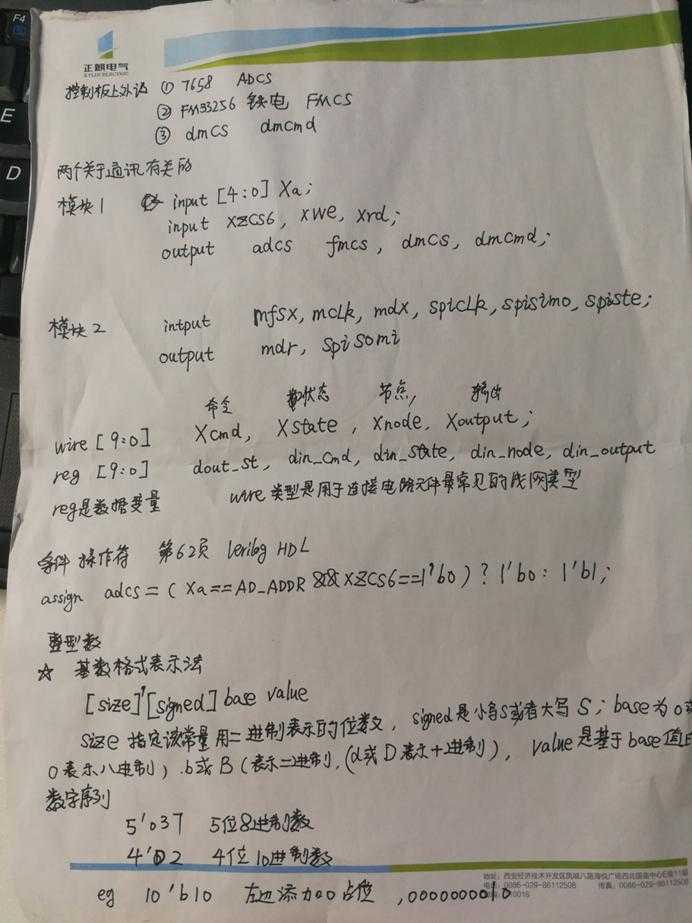 正麒电气
控制板上外设 ① 7658 ADCS
② FM33256 铁电 FMCS
③ dmcs dmcmd
两个关于通讯有关的
模块1 input [4:0] Xa;
input XZCS6, xwe, xrd;
output adcs fmcs, dmcs, dmcmd;
模块2 intput mfsx, mclk, mdx, spiclk, spisimo, spiste;
output mdr, spisomi
命令 状态 节点, 输出
wire [9:0] Xcmd, Xstate, Xnode, Xoutput;
reg [9:0] dout_st, din_cmd, din_state, din_node, din_output
reg是数据变量 wire 类型是用于连接电路元件最常见的线网类型
条件操作符 第62页 Verilog HDL
assign adcs = ( Xa==AD_ADDR && XZCS6==1'b0 ) ? 1'b0 : 1'b1;
整型数
☆ 基数格式表示法
[size]'[signed] base value
size 指定该常量用二进制表示的位数, signed是小写s或者大写S; base为o或
O表示八进制), b或B(表示二进制), (d或D表示十进制), value是基于base值的
数字序列
5'o37 5位8进制数
4'D2 4位10进制数
eg 10'b10 左边添加0占位, 0000000010
地址: 西安经济技术开发区凤城八路海佼广场西北国金中心E座11层
电话: 0086-029-86112508 传真: 0086-029-86112508